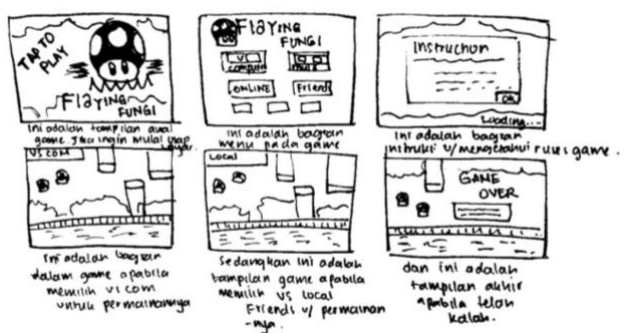 TAP TO
PLAY
FlaYING
FUNGI
Ini adalah tampilan awal
game. Jika ingin mulai tap
layar.
FlaYING
FUNGI
VS
computer
ONLINE
Friend
Ini adalah bagian
menu pada game
Instruction
OK
Loading...
Ini adalah bagian
instruksi u/ mengetahui rules game.
VS COM
Ini adalah bagian
dalam game apabila
memilih vs com
untuk permainannya
Local
Sedangkan ini adalah
tampilan game apabila
memilih VS local
Friends u/ permainan
-nya.
GAME
OVER
dan ini adalah
tampilan akhir
apabila telah
kalah.